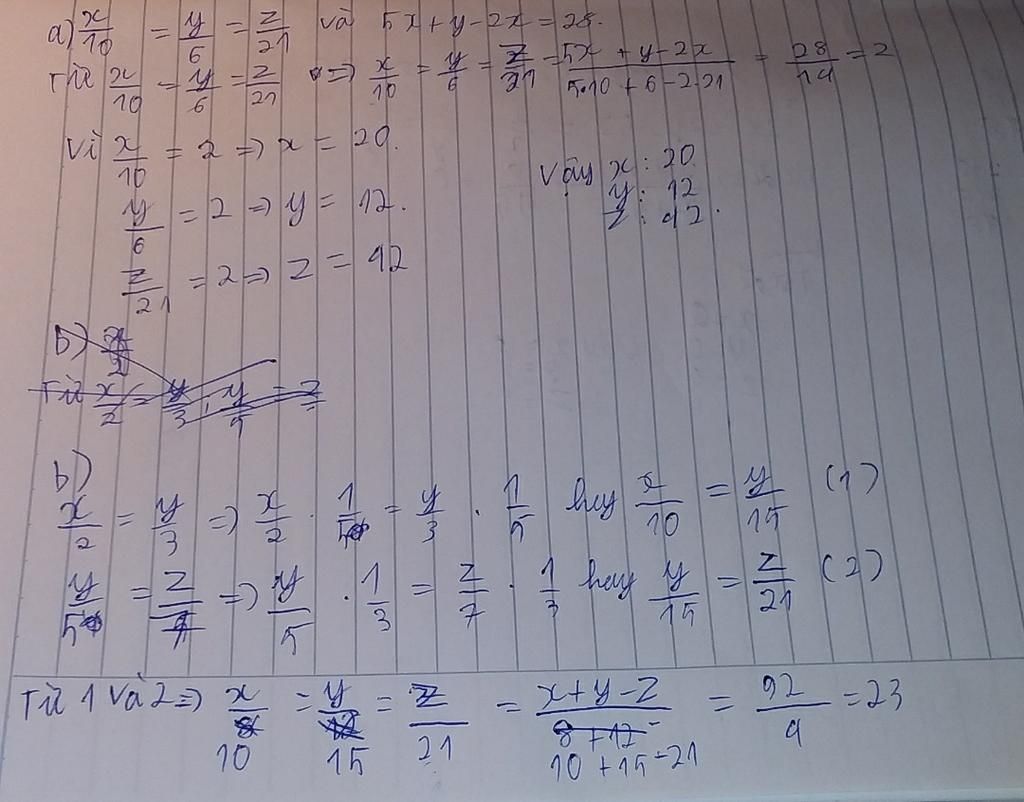 a) x/10 = y/6 = z/21 và 5x+y-2x = 28.
Từ x/10 = y/6 = z/21 => x/10 = y/6 = z/21 = 5x+y-2x/5.10+6-2.21 = 28/14 = 2
Vì x/10 = 2 => x = 20.
y/6 = 2 => y = 12.
z/21 = 2 => z = 42
Vậy x: 20
y: 12
z: 42.
b)
Từ x/2 = y/3, y/5 = z
b)
x/2 = y/3 => x/2 . 1/5 = y/3 . 1/5 hay x/10 = y/15 (1)
y/5 = z/7 => y/5 . 1/3 = z/7 . 1/3 hay y/15 = z/21 (2)
Từ 1 và 2 => x/10 = y/15 = z/21 = x+y-z/10+15-21 = 92/4 = 23